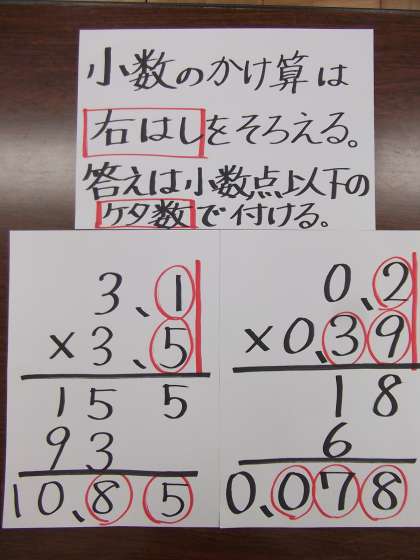 小数のかけ算は
右はしをそろえる。
答えは小数点以下の
ケタ数で付ける。
3、1
×3、5
155
93
10、85
0、2
×0、39
18
6
0、078